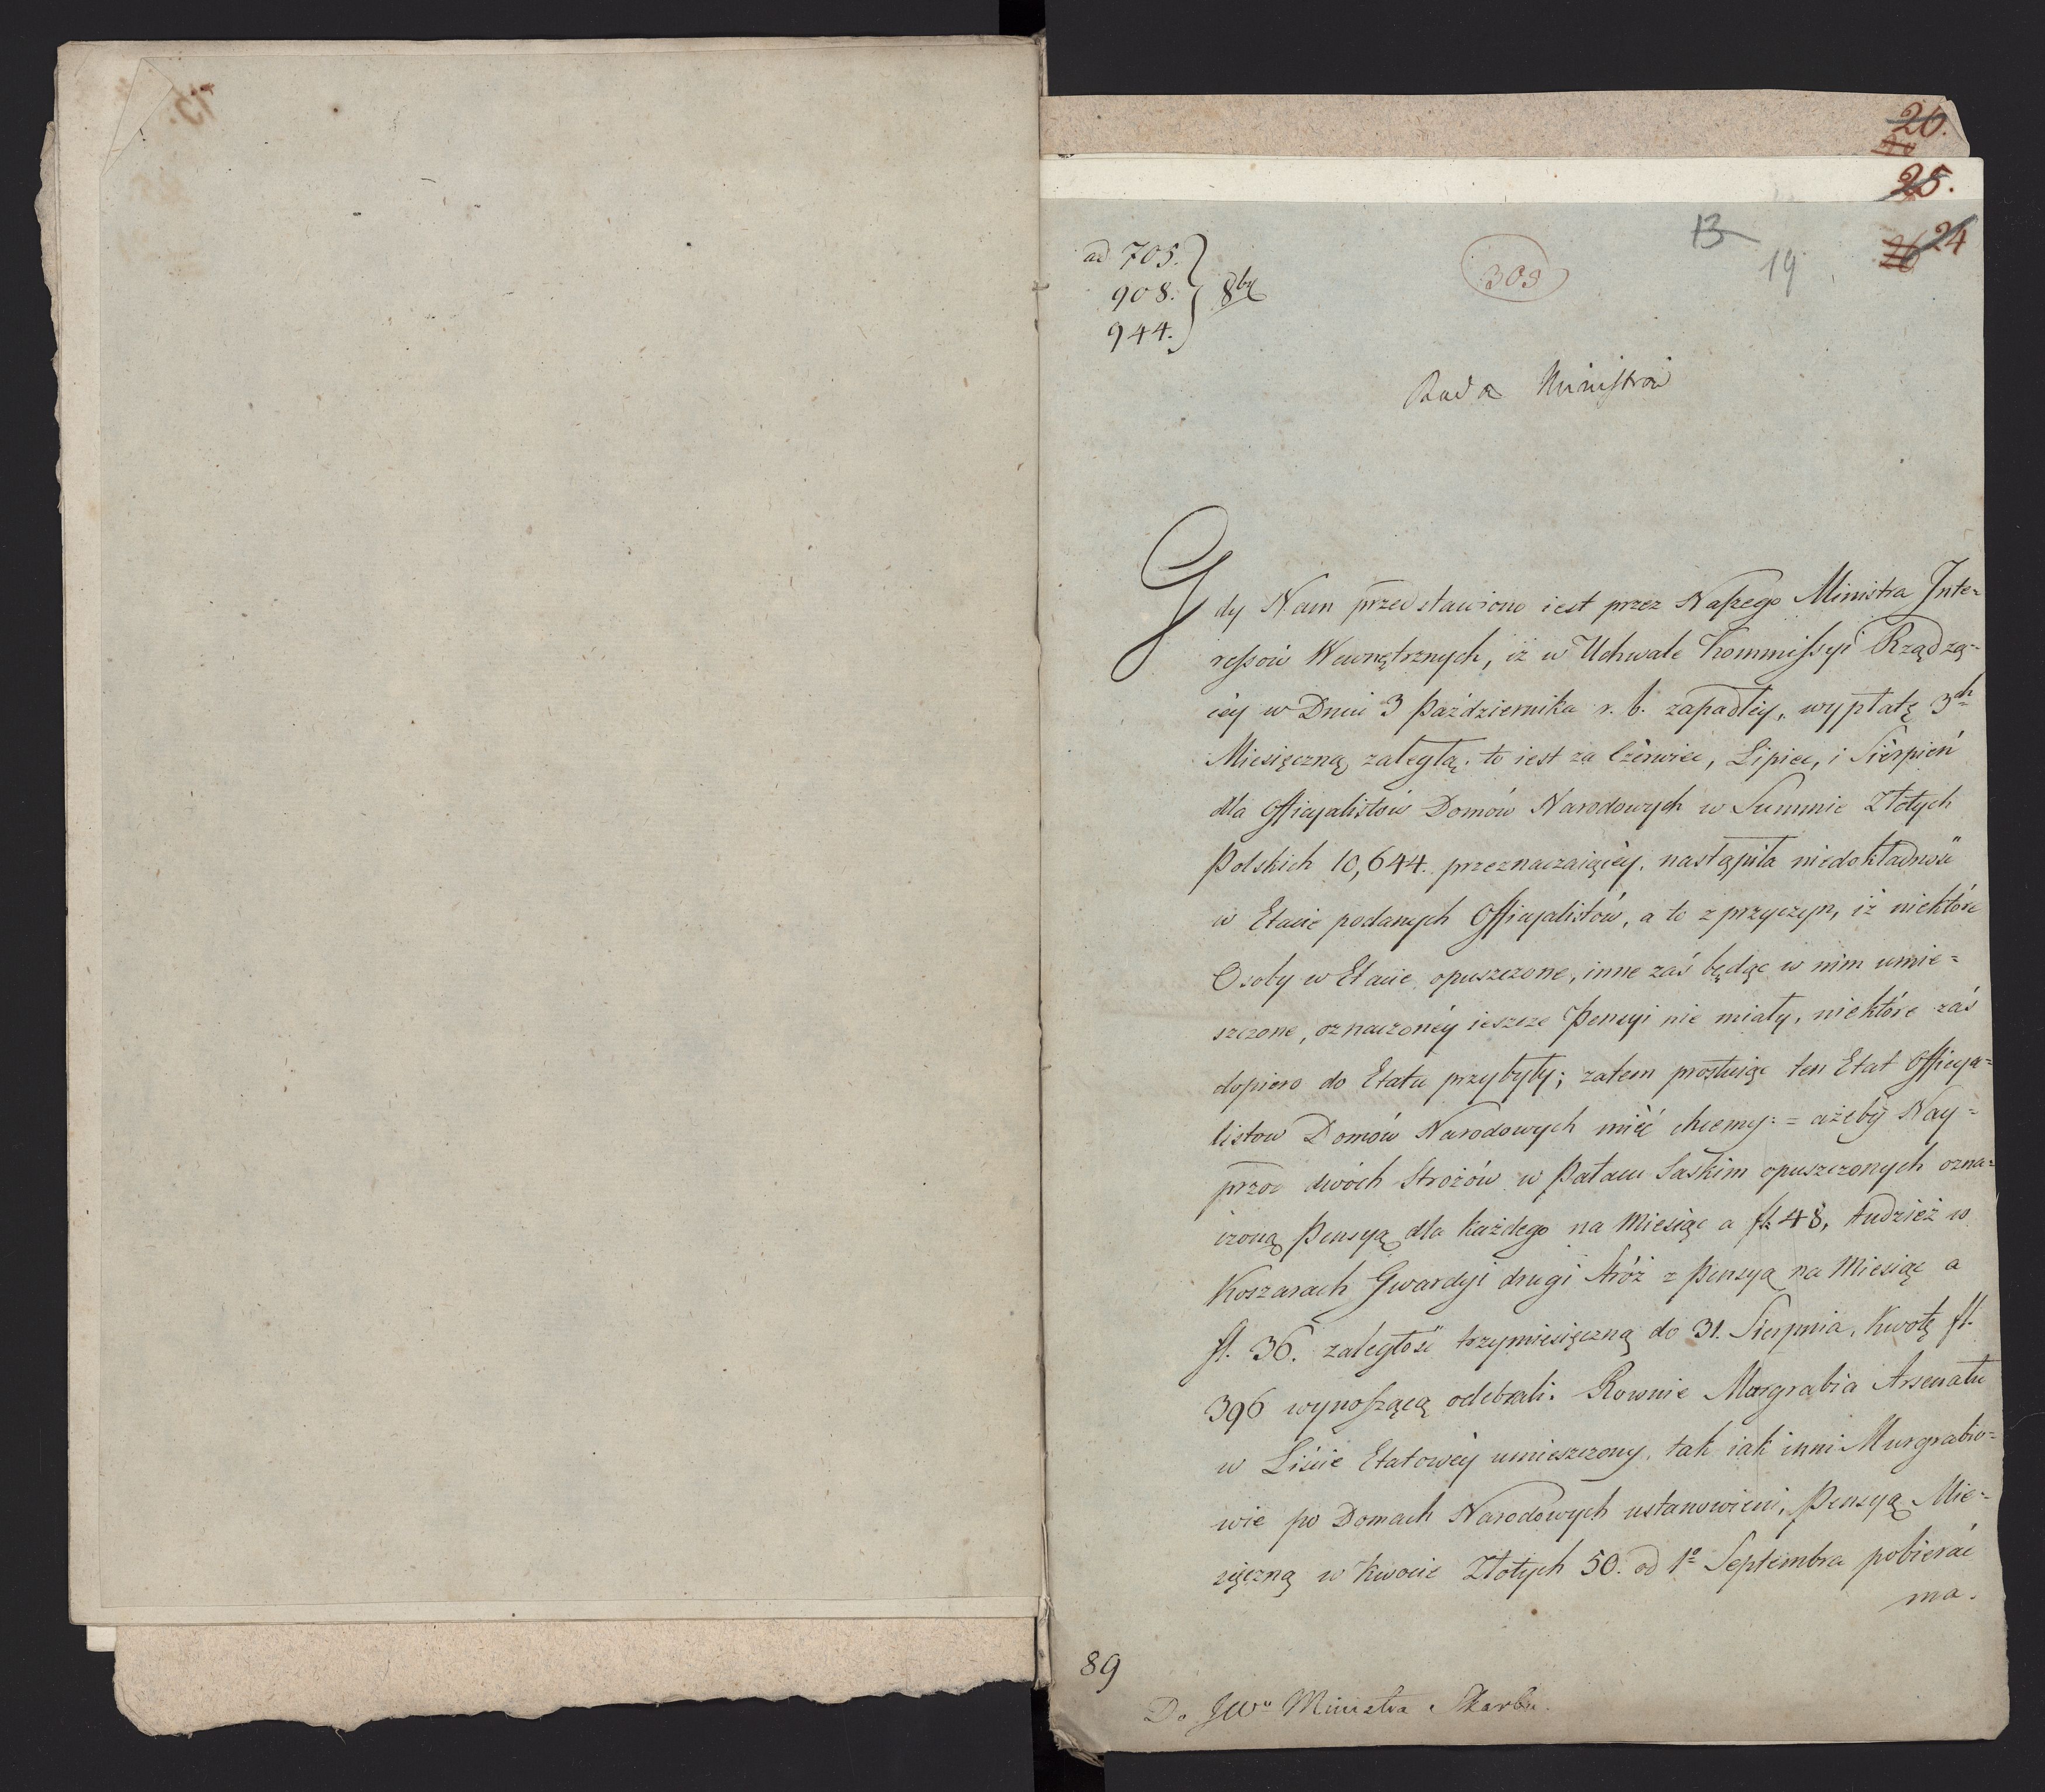 20.
25.
13
24
26
19
303
ad 705.
908. 8br
944.
Rada Ministrów
Gdy Nam przedstawiono iest przez Naszego Ministra Inte=
ressów Wewnętrznych, iż w Uchwale Kommissyi Rządzą=
céy w Dniu 3 Października r. b. zapadłéy, wypłatę 3ch
Miesięczną zaległą, to iest za Czerwiec, Lipiec, i Sierpień
dla Officyalistów Domów Narodowych w Summie Złotych
Polskich 10,644. przeznaczaiącéy, nastąpiła niedokładność
w Etacie podanych Officyalistów, a to z przyczyn, iż niektóre
Osoby w Etacie opuszczone, inne zaś będąc w nim umie=
szczone, oznaczonéy ieszcze Pensyi nie miały, niektóre zaś
dopiero do Etatu przybyły; zatem prostuiąc ten Etat Officya=
listow Domów Narodowych mieć chcemy: = ażeby Nay=
przod dwóch Stróżów w Pałacu Saskim opuszczonych ozna=
czoną Pensyą dla każdego na Miesiąc a fl. 48, tudzież w
Koszarach Gwardyi drugi Stróż z Pensyą na Miesiąc a
fl. 36. zaległość trzymiesięczną do 31. Sierpnia, Kwotę fl.
396 wynoszącą odebrali. Rownie Murgrabia Arsenału
w Liście Etatowéy umieszczony, tak iak inni Murgrabio=
wie po Domach Narodowych ustanowieni, Pensyą Mie=
sięczną w Kwocie Złotych 50. od 1o Septembra pobierać
ma.
89
Do JWo Ministra Skarbu.